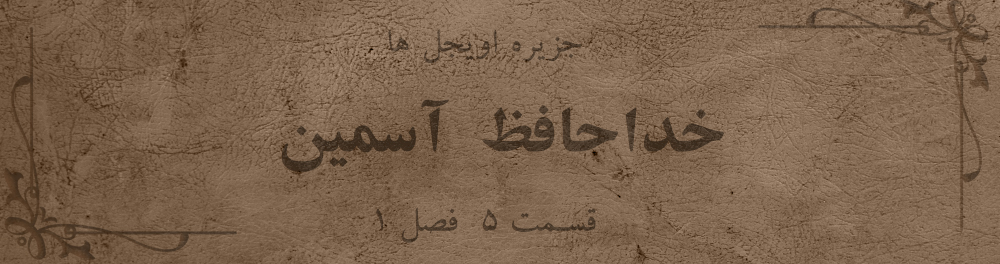 جزیره اویجل ها
خداحافظ آسمین
قسمت ۵ فصل ۱